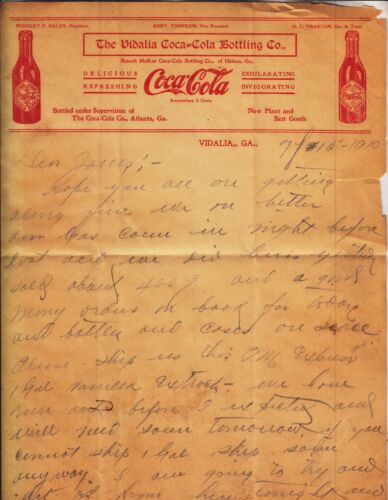 HERBERT P. HALEY, President. ROBT. TOMPKINS, Vice President O. C. THAXTON, Sec. & Treas.
The Vidalia Coca-Cola Bottling Co.,
Branch McRae Coca-Cola Bottling Co., of Helena, Ga.
DELICIOUS
REFRESHING
Coca-Cola
EXHILARATING
INVIGORATING
Everywhere 5 Cents
Bottled under Supervision of
The Coca-Cola Co., Atlanta, Ga.
New Plant and
Best Goods
VIDALIA, GA., 15-1910
Dear
Hope you all on getting
along fine we on better
our Gas come in night before
last and we did busy
sold about and a good
Many orders on book for today
and bottles and cases on
Please ship us this P.M. Express
1 Gal vanilla Extract - we have
run out before I expected and
will need some tomorrow, if you
cannot ship 1 Gal ship some
anyway. I am going to try and